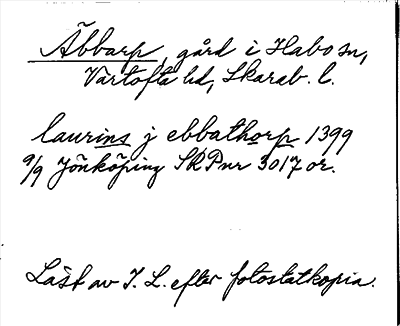 Äbbarp, gård i Habo sn,
Vartofta hd, Skarab. l.
laurins j ebbathorp 1399
9/9 Jönköping SRPnr 3017 or.
Läst av I. L. efter fotostatkopia.